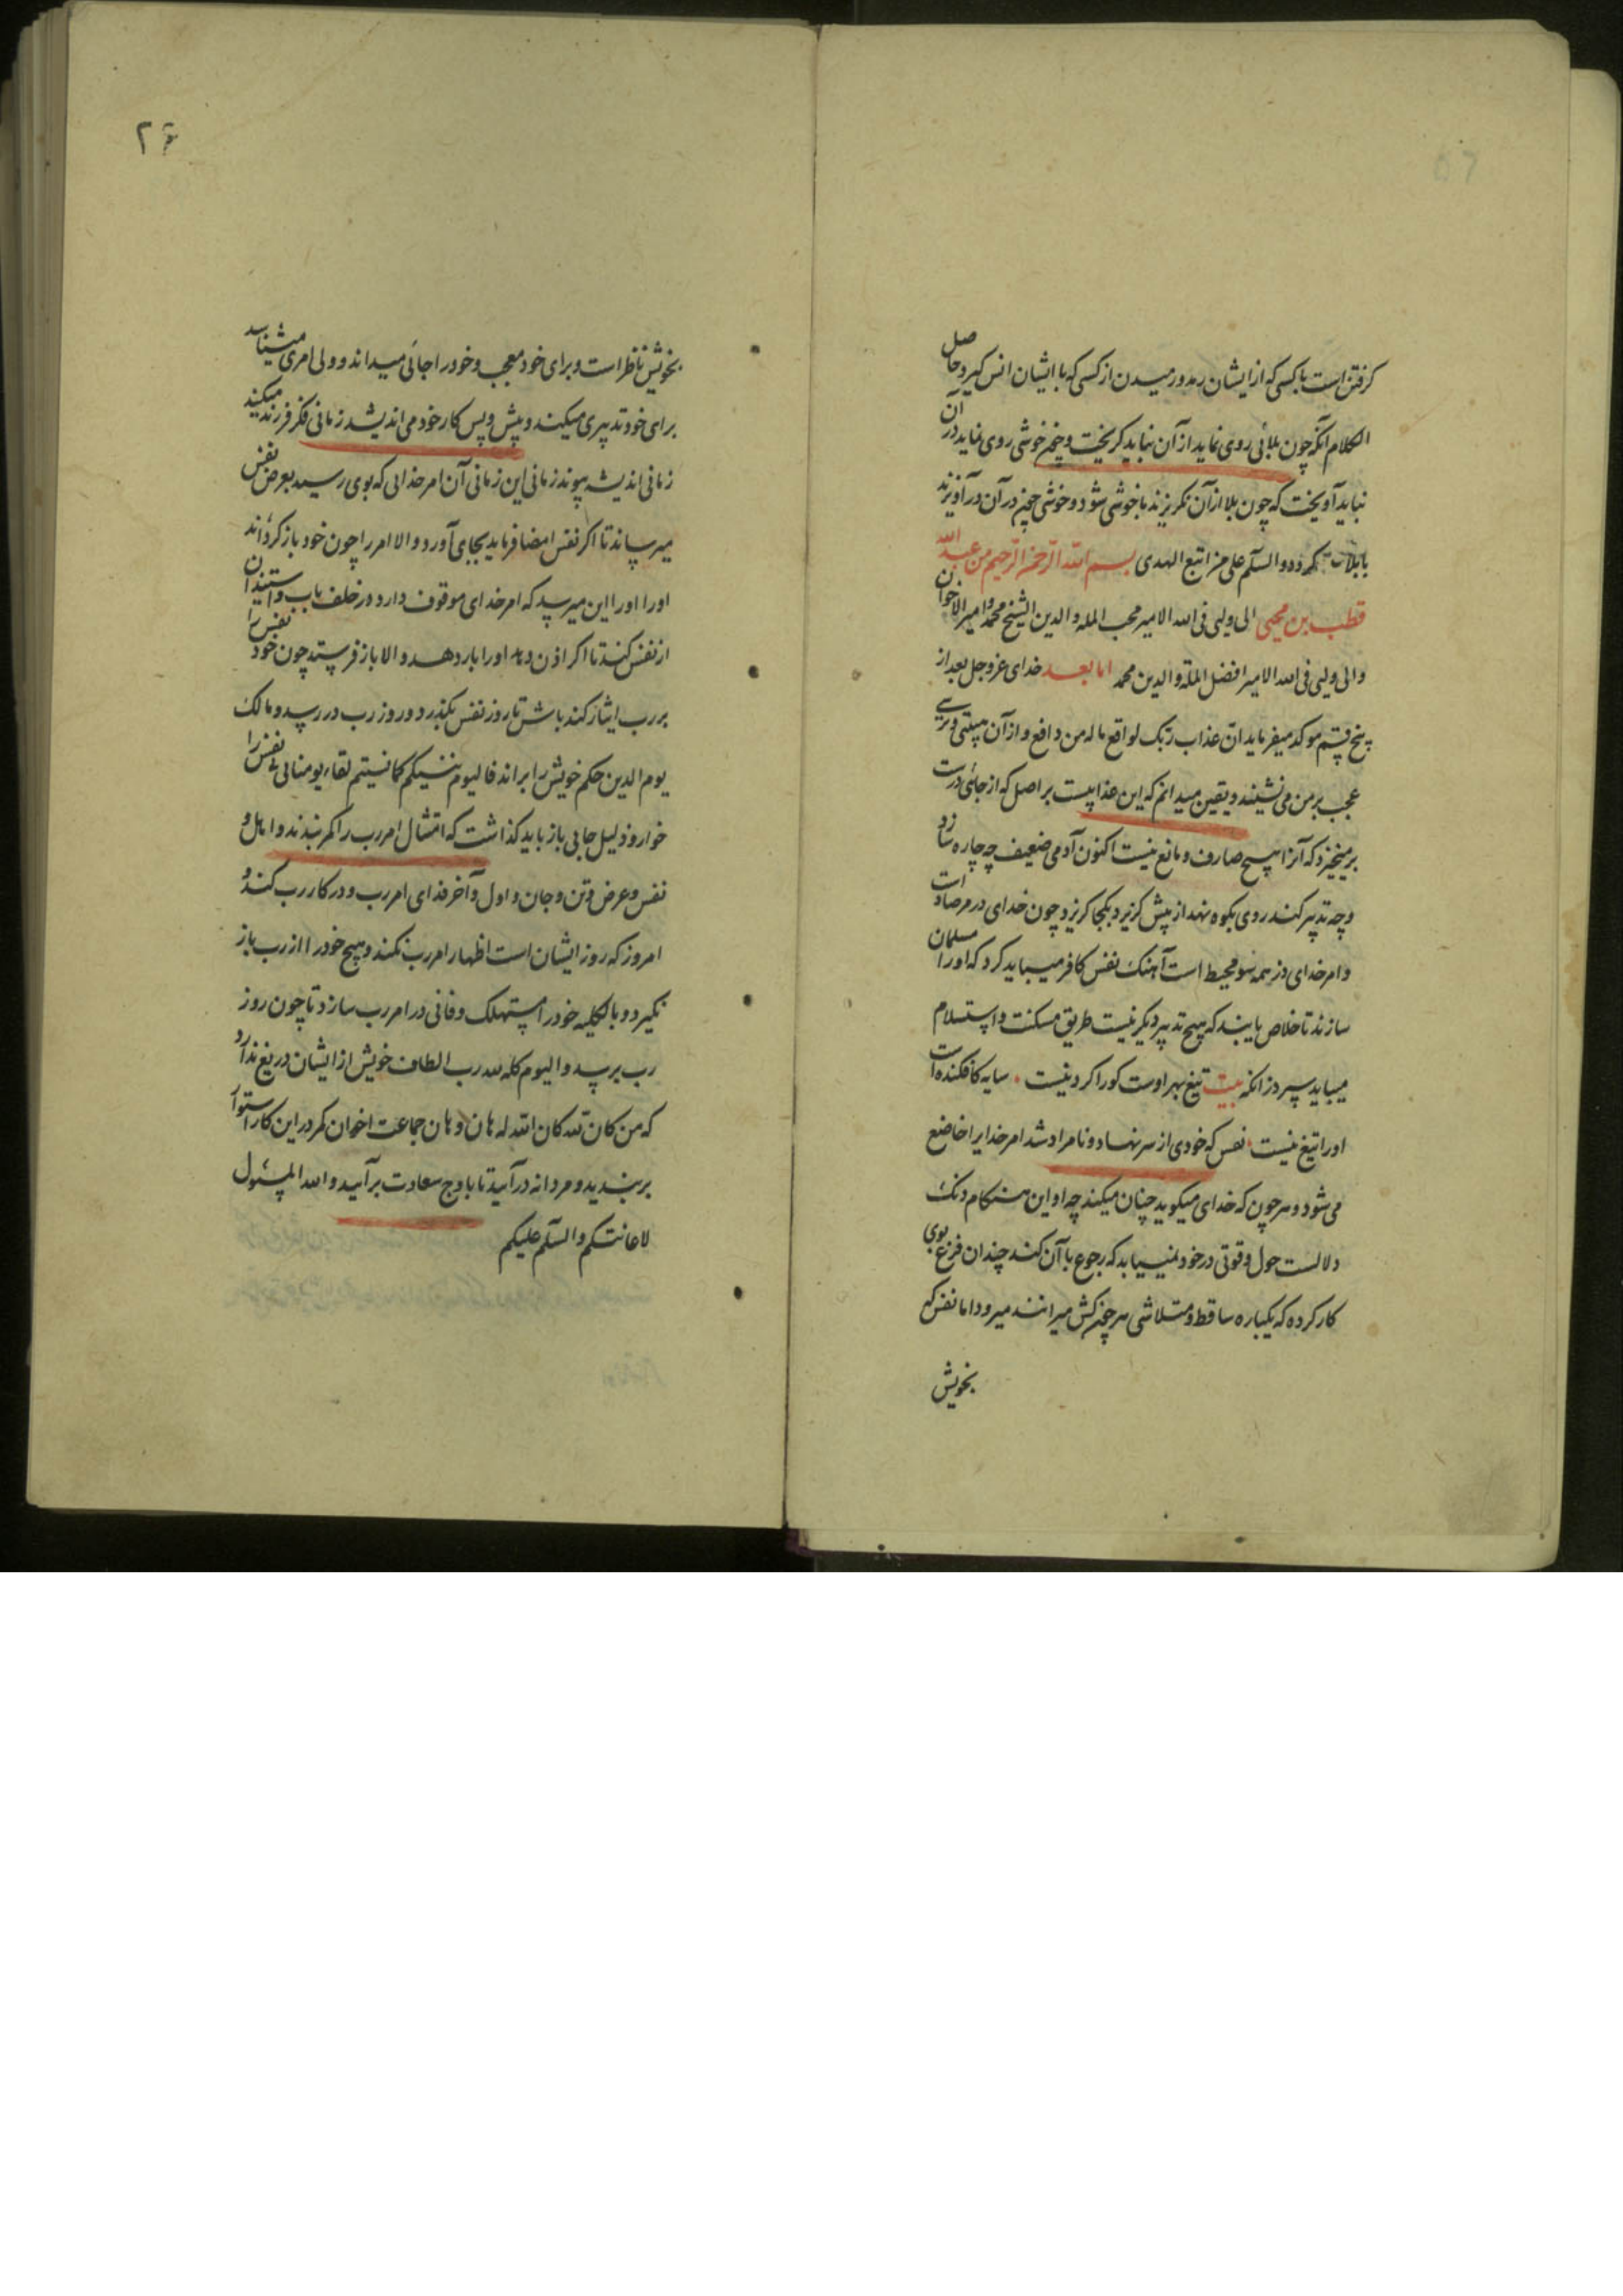 گرفتن است با کسی که از ایشان رمد و رمیدن از کسی که با ایشان انس گیرد حاصل
الکلام آنکه چون بلائی روی نماید از آن نباید گریخت و چون خوشی روی نماید در آن
نباید آویخت که چون بلا از آن نگریزند با خوشی شود و خوشی چون در آن درآویزند
با بلا گردد والسلام علی من اتبع الهدی بسم الله الرحمن الرحیم من عبد الله
قطب بن محیی الی ولیی فی الله الامیر محب المله والدین الشیخ محمد و امیر الاخوان
والی ولیی فی الله الامیر افضل الملة والدین محمد اما بعد خدای عز و جل بعد از
پنج قسم موکد میفرماید ان عذاب ربک لواقع ما له من دافع و از آن هیبتی و ترسی
عجب بر من می نشیند و یقین میدانم که این عذابیست بر اصل که از جائی درست
برمیخیزد که آنرا هیچ صارف و مانع نیست اکنون آدمی ضعیف چه چاره سازد
و چه تدبیر کند روی بکوه نهد از پیش گریزد بکجا گریزد چون خدای در مرصاد است
و امر خدای از همه سو محیط است آهنگ نفس کافر میباید کرد که او را مسلمان
سازند تا خلاص یابند که هیچ تدبیر دیگر نیست طریق مسکنت و استسلام
میباید سپرد زانکه بیت تیغ بهر اوست کورا گردنیست سایه کافکنده است
او را تیغ نیست نفس که خودی از سر نهاد و نامراد شد امر خدایرا خاضع
می شود و هر چون که خدای میگوید چنان میکند چه او این هنگام دنگ
دلالست حول و قوتی در خود نمییابد که رجوع با آن کند چندان فزع بوی
کار کرده که یکباره ساقط و متلاشی هر چون کش میرانند میرود اما نفس که
بخویش
۲۶
بخویش ناظر است و برای خود معجب و خود را جائی میداند و ولی امری میشناسد
برای خود تدبیری میکند و پیش و پس کار خود می اندیشد زمانی فکر فرزند میکند
زمانی اندیشه پیوند زمانی این زمانی آن امر خدایی که بوی رسید بعرض نفس
میرساند تا اگر نفس امضا فرماید بجای آورد و الا امر را چون خود باز گرداند
او را او را این میرسد که امر خدای موقوف دارد در خلف باب و استیذان
از نفس کند تا اگر اذن دهد او را بار دهد و الا باز فرستد چون خود نفس را
بر رب ایثار کند باش تا روز نفس بگذرد و روز رب در رسد و مالک
یوم الدین حکم خویش را براند فالیوم ننسیکم کما نسیتم لقاء یومنا نفس را
خوار و ذلیل جایی باز باید گذاشت که امتثال امر رب را کمر بندند و اهل و
نفس و عرض و تن و جان و اول و آخر فدای امر رب و در کار رب کند و
امروز که روز ایشان است اظهار امر رب نکند و هیچ خود را از رب باز
نگیرد و بالکلیه خود را مستهلک و فانی در امر رب سازد تا چون روز
رب برسد والیوم کله لله رب الطاف خویش از ایشان دریغ ندارد
که من کان لله کان الله له هان و هان جماعت اخوان کمر در این کار استوار
بربندید و مردانه درآئید تا باوج سعادت برآئید و الله المسئول
لاعانتکم والسلم علیکم